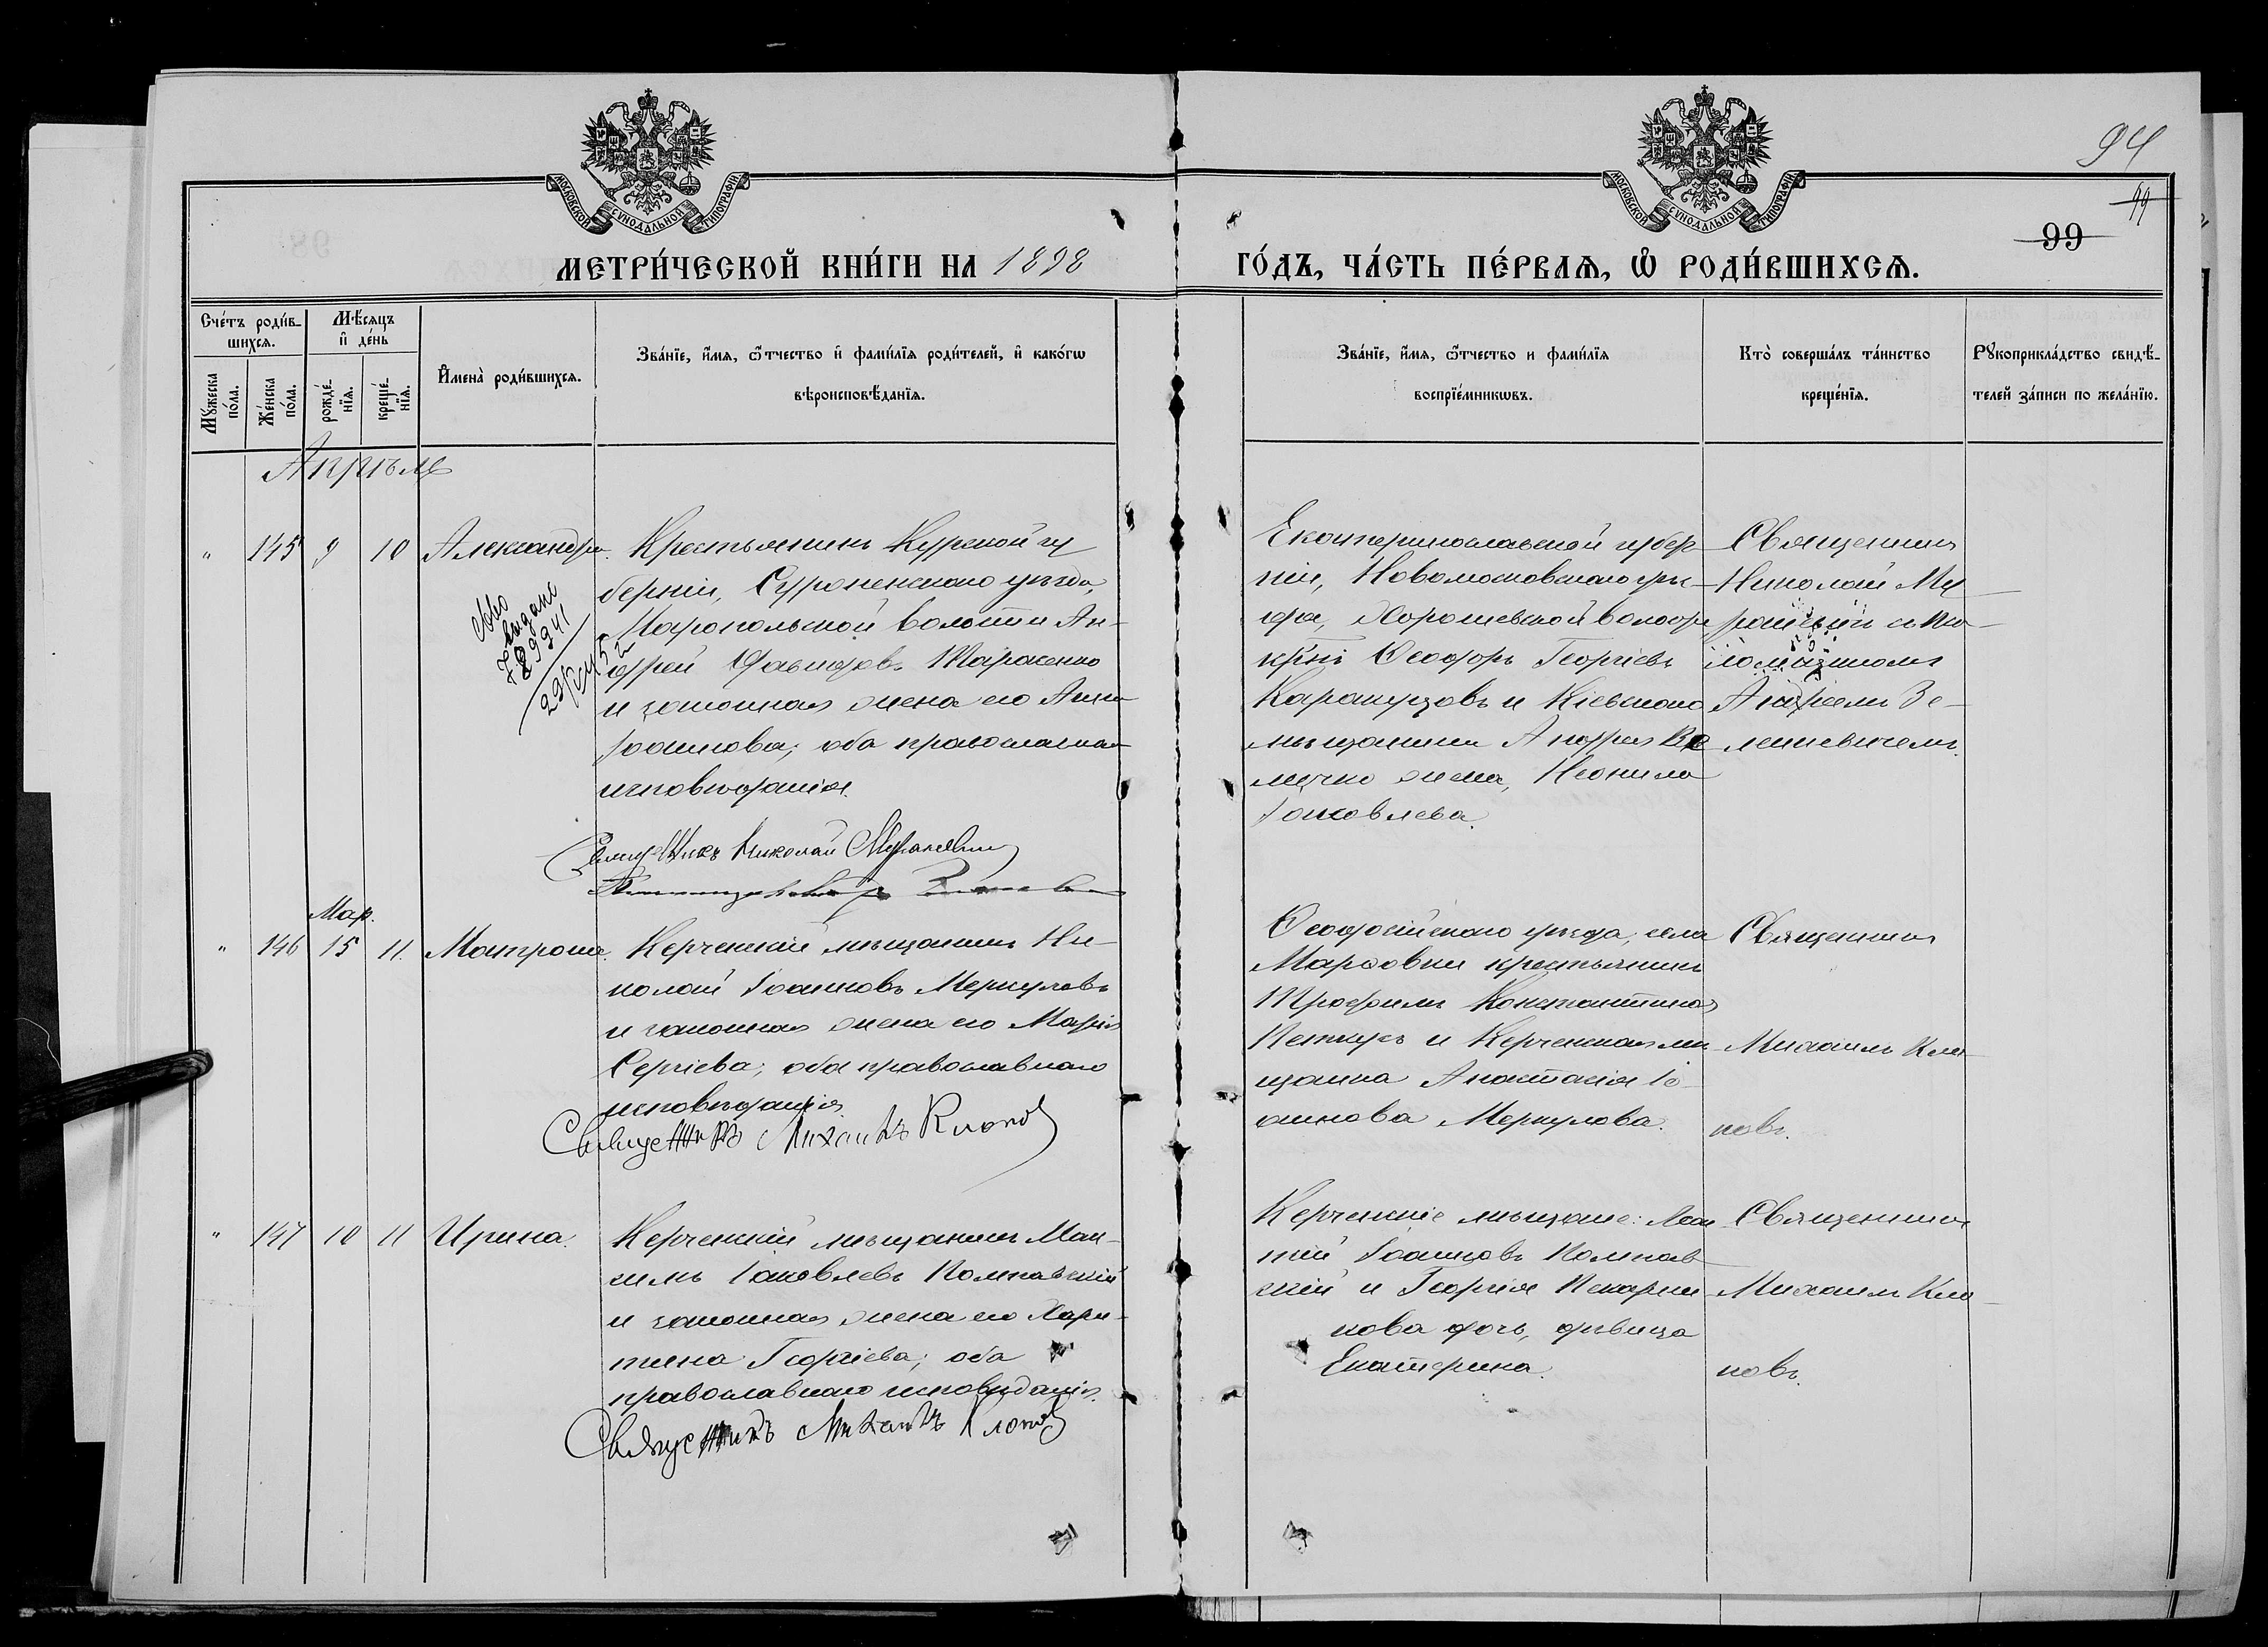 94
99
99
МОСКОВСКОЙ СѴНОДАЛЬНОЙ ТИПОГРАФІИ
МОСКОВСКОЙ СѴНОДАЛЬНОЙ ТИПОГРАФІИ
МЕТРИ́ЧЕСКОЙ КНИ́ГИ НА 1898
ГО́ДЪ, ЧА́СТЬ ПЕ́РВАѦ, Ѽ РОДИ́ВШИХСѦ.
Сче́тъ роди́в-
шихсѧ.
Мꙋ́жеска по́ла.
Же́нска по́ла.
Мѣ́сѧцъ
и҆ де́нь
рожде́-
нїѧ.
креще́-
нїѧ.
И҆мена̀ роди́вшихсѧ.
Зва́нїе, и҆́мѧ, ѻ҆́тчество и҆ фами́лїѧ роди́телей, и҆ како́гѡ
вѣроисповѣ́данїѧ.
Зва́нїе, и҆́мѧ, ѻ҆́тчество и фами́лїѧ
воспрїе́мникѡвъ.
Кто̀ соверша́лъ та́инство
креще́нїѧ.
Рꙋкоприкла́дство свидѣ́-
телей за́писи по жела́нїю.
Апрѣль
" 145 9 10 Александра. Крестьянинъ Курской гу
берніи, Суджанскаго уѣзда,
Миропольской волости Ан-
дрей Давидовъ Тарасенко
и законная жена его Анна
Іоаннова; оба православнаго
исповѣданія.
выдано
29941
Священникъ Николай
Екатеринославской губер-
ніи, Новомосковскаго уѣз-
да, волости
Ѳеодоръ Георгіевъ
и Кіевскаго
мѣщанина Андрея
жена, Неонила
Іаковлева.
Священникъ
Николай
съ пса-
ломщикомъ
Андреемъ Зе-
леневичемъ.
Мар.
" 146 15 11. Матрона. Керченскій мѣщанинъ Ни-
колай Іоанновъ Меркуловъ
и законная жена его Марія
Сергіева; оба православнаго
исповѣданія.
Священникъ Михаилъ Клопов
Ѳеодосійскаго уѣзда, села
Марфовки крестьянинъ
Трофимъ Константиновъ
и Керченская мѣ-
щанка Анастасія Іо-
аннова Меркулова.
Священникъ
Михаилъ Кло-
повъ.
" 147 10 11 Ирина. Керченскій мѣщанинъ Мак-
симъ Іаковлевъ Полтавскій
и законная жена его Хари-
тина Георгіева; оба
православнаго исповѣданія.
Священникъ Михаилъ Клопов
Керченскіе мѣщане:
Іоанновъ Полтав-
скій и Георгія Пекарни-
кова дочь, дѣвица
Екатерина.
Священникъ
Михаилъ Кло-
повъ.